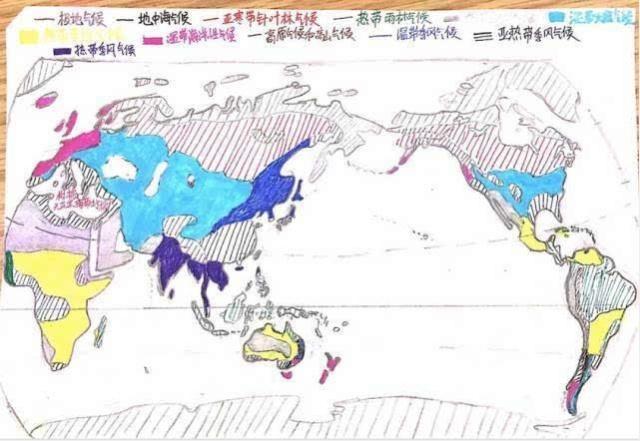 极地气候 地中海气候 亚寒带针叶林气候 热带雨林气候 温带大陆气候
热带草原气候 温带海洋性气候 高原气候和高山气候 温带季风气候 亚热带季风气候
热带季风气候